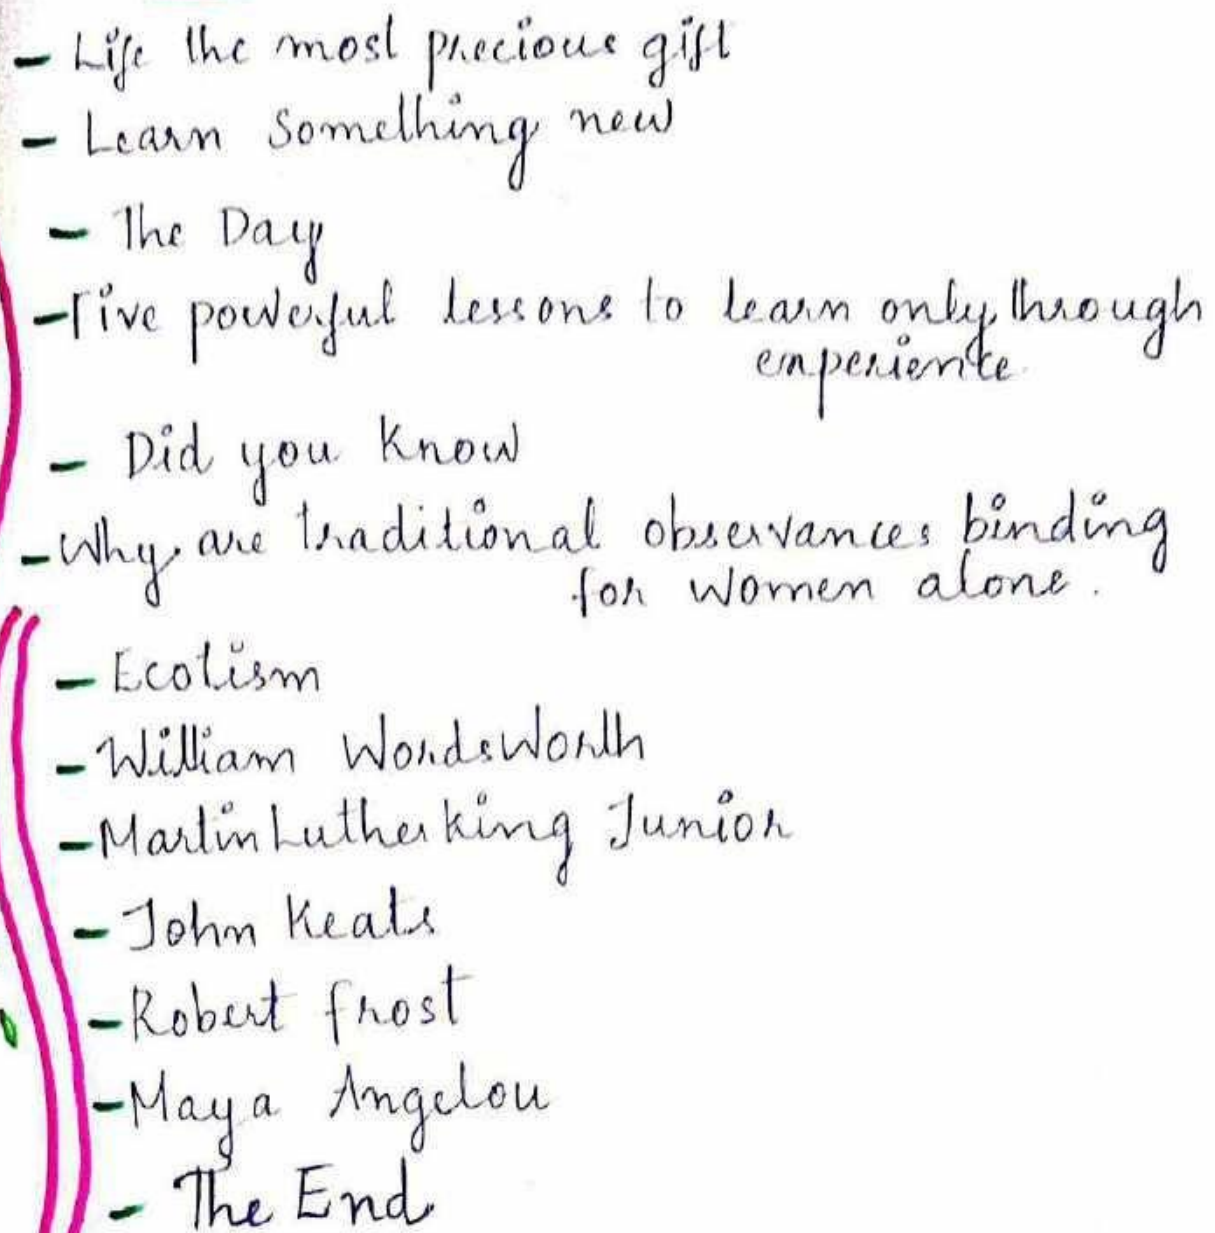 - Life the most precious gift
- Learn Something new
- The Day
- Five powerful lessons to learn only through
experience
- Did you Know
- Why are traditional observances binding
for women alone.
- Ecotism
- William Wordsworth
- Martin Luther king Junior
- John Keats
- Robert frost
- Maya Angelou
- The End